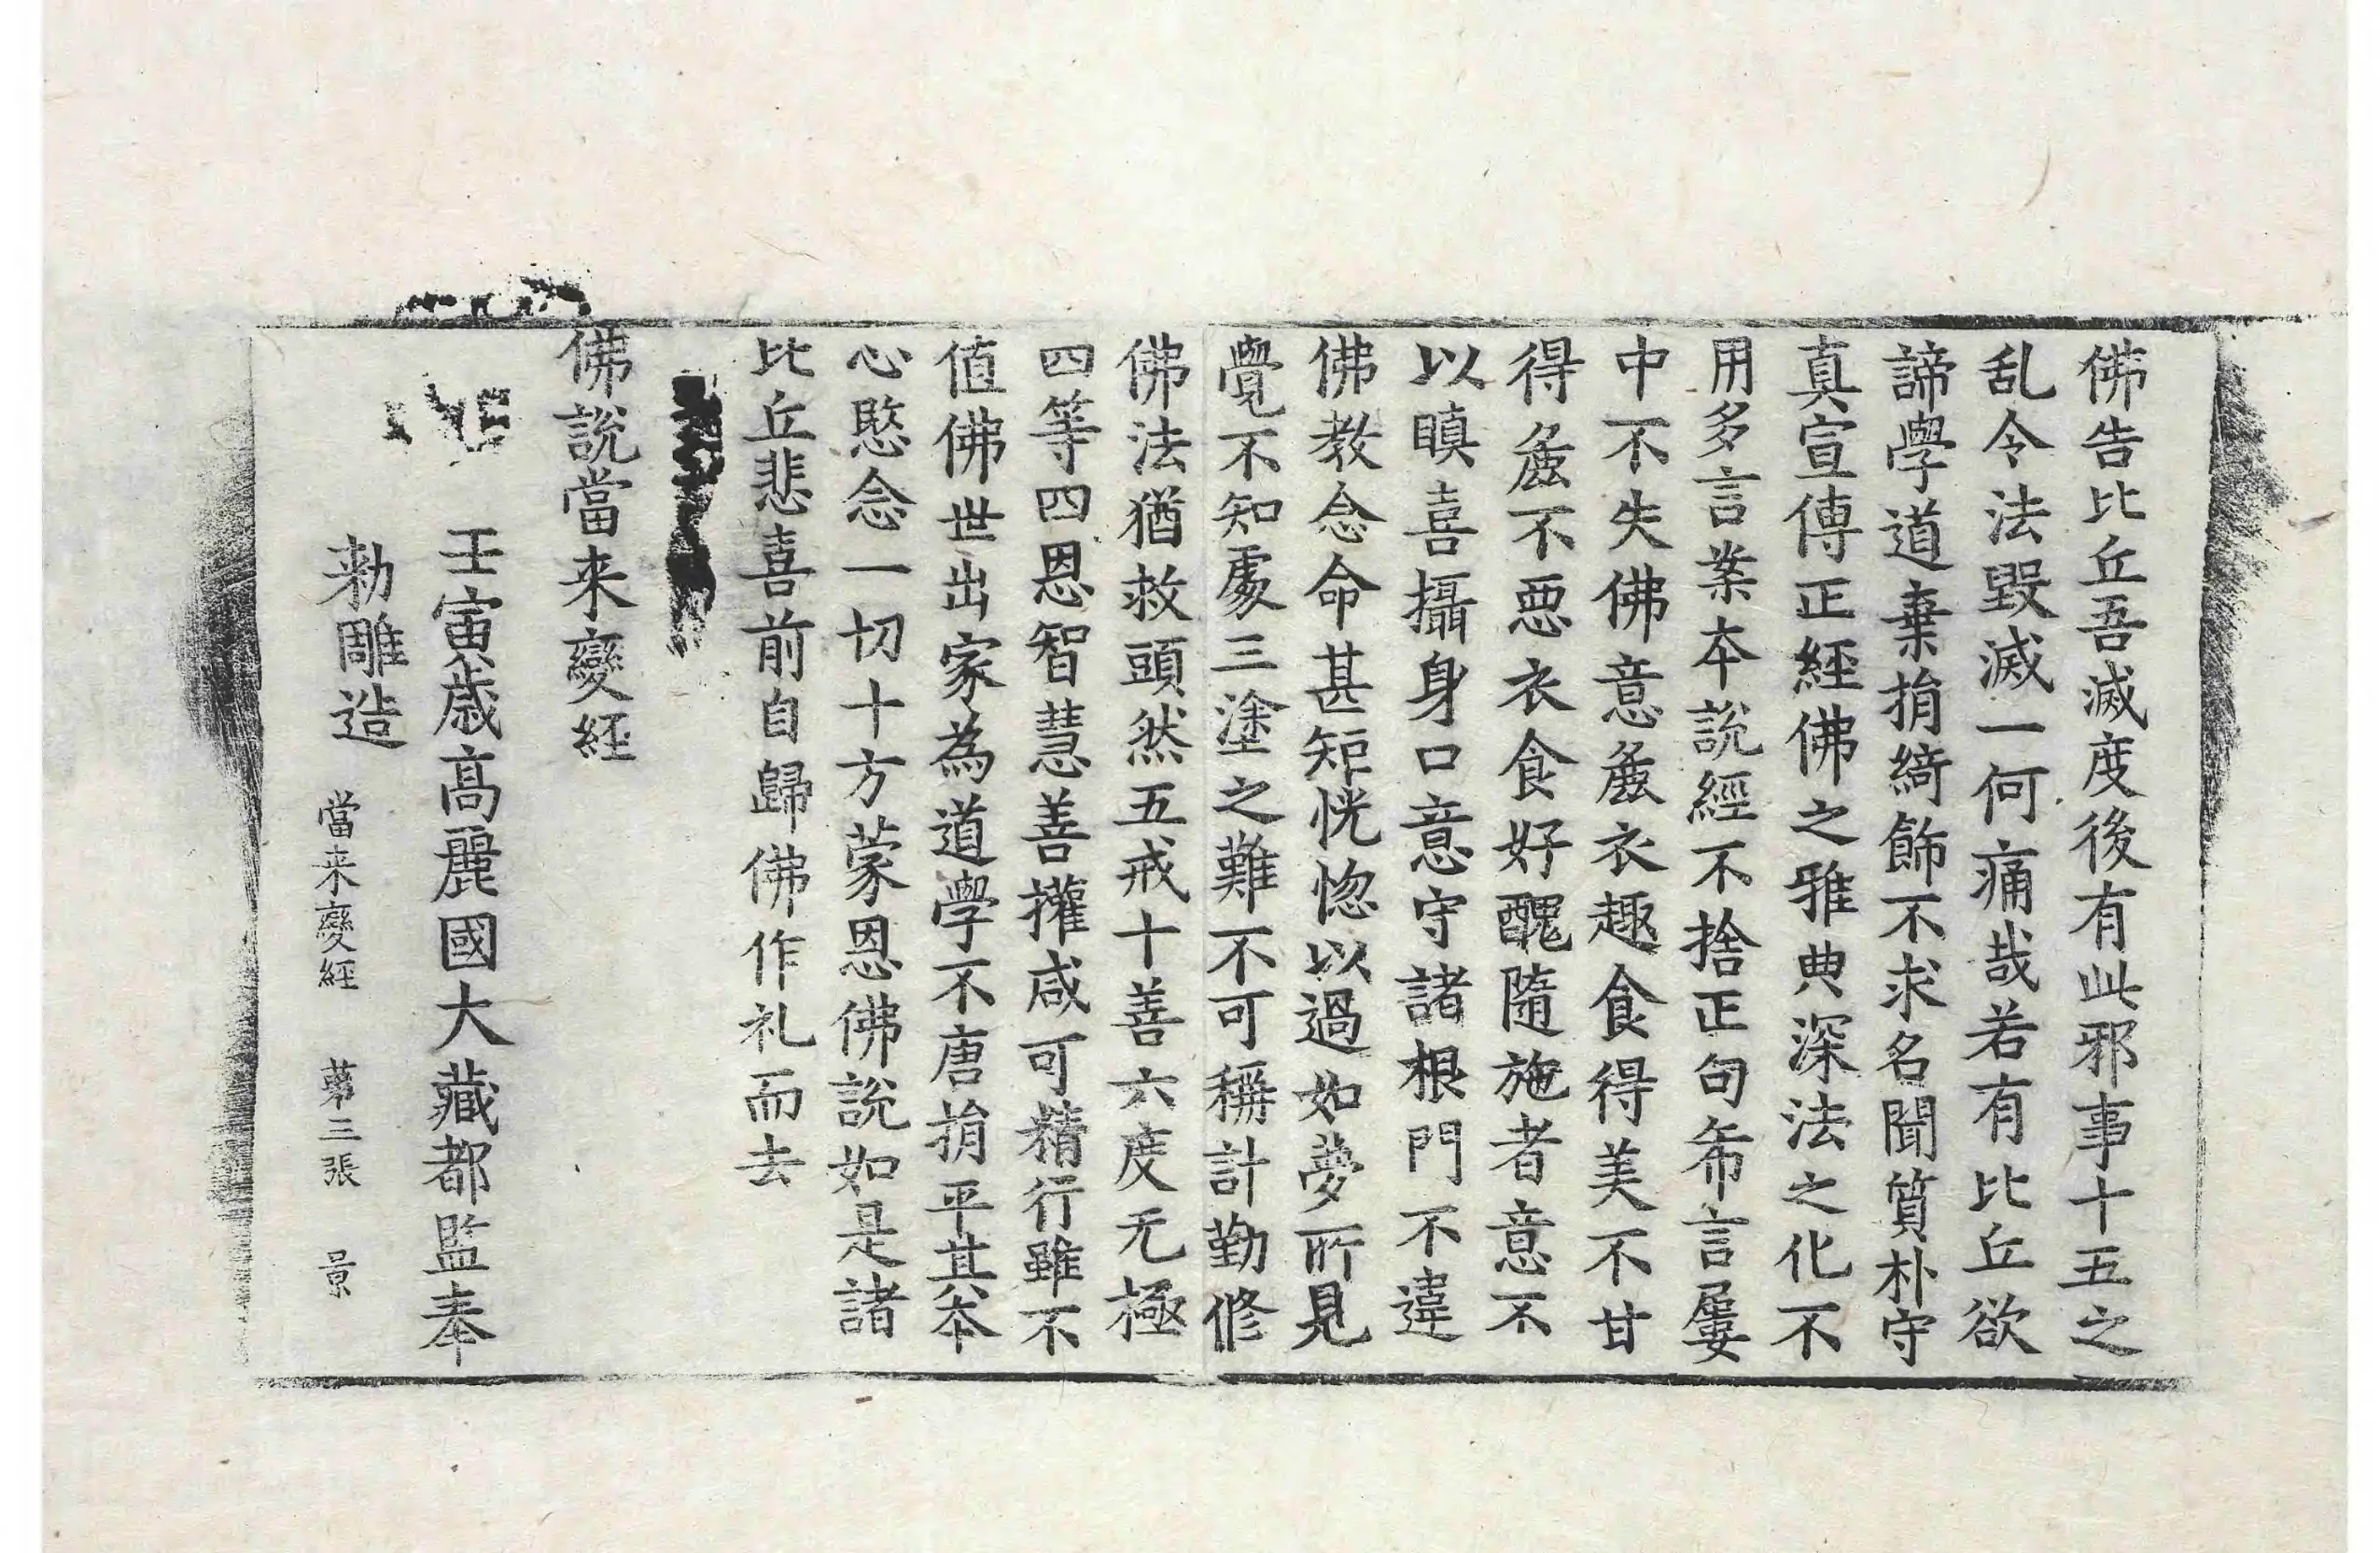 佛告比丘吾滅度後有此邪事十五之
乱令法毀滅一何痛哉若有比丘欲
諦學道棄捐綺飾不求名聞質朴守
真宣傳正經佛之雅典深法之化不
用多言案本說經不捨正句希言屢
中不失佛意麁衣趣食得美不甘
得麁不惡衣食好醜隨施者意不
以瞋喜攝身口意守諸根門不違
佛教念命甚矩恍惚以過如夢所見
覺不知處三塗之難不可稱計勤修
佛法猶救頭然五戒十善六度无極
四等四恩智慧善攉咸可精行雖不
值佛世出家為道學不唐捐平其本
心愍念一切十方蒙恩佛說如是諸
比丘悲喜前自歸佛作礼而去
佛說當来變経
壬寅歲高麗國大藏都監奉
勑雕造
當来變経 第三張 景